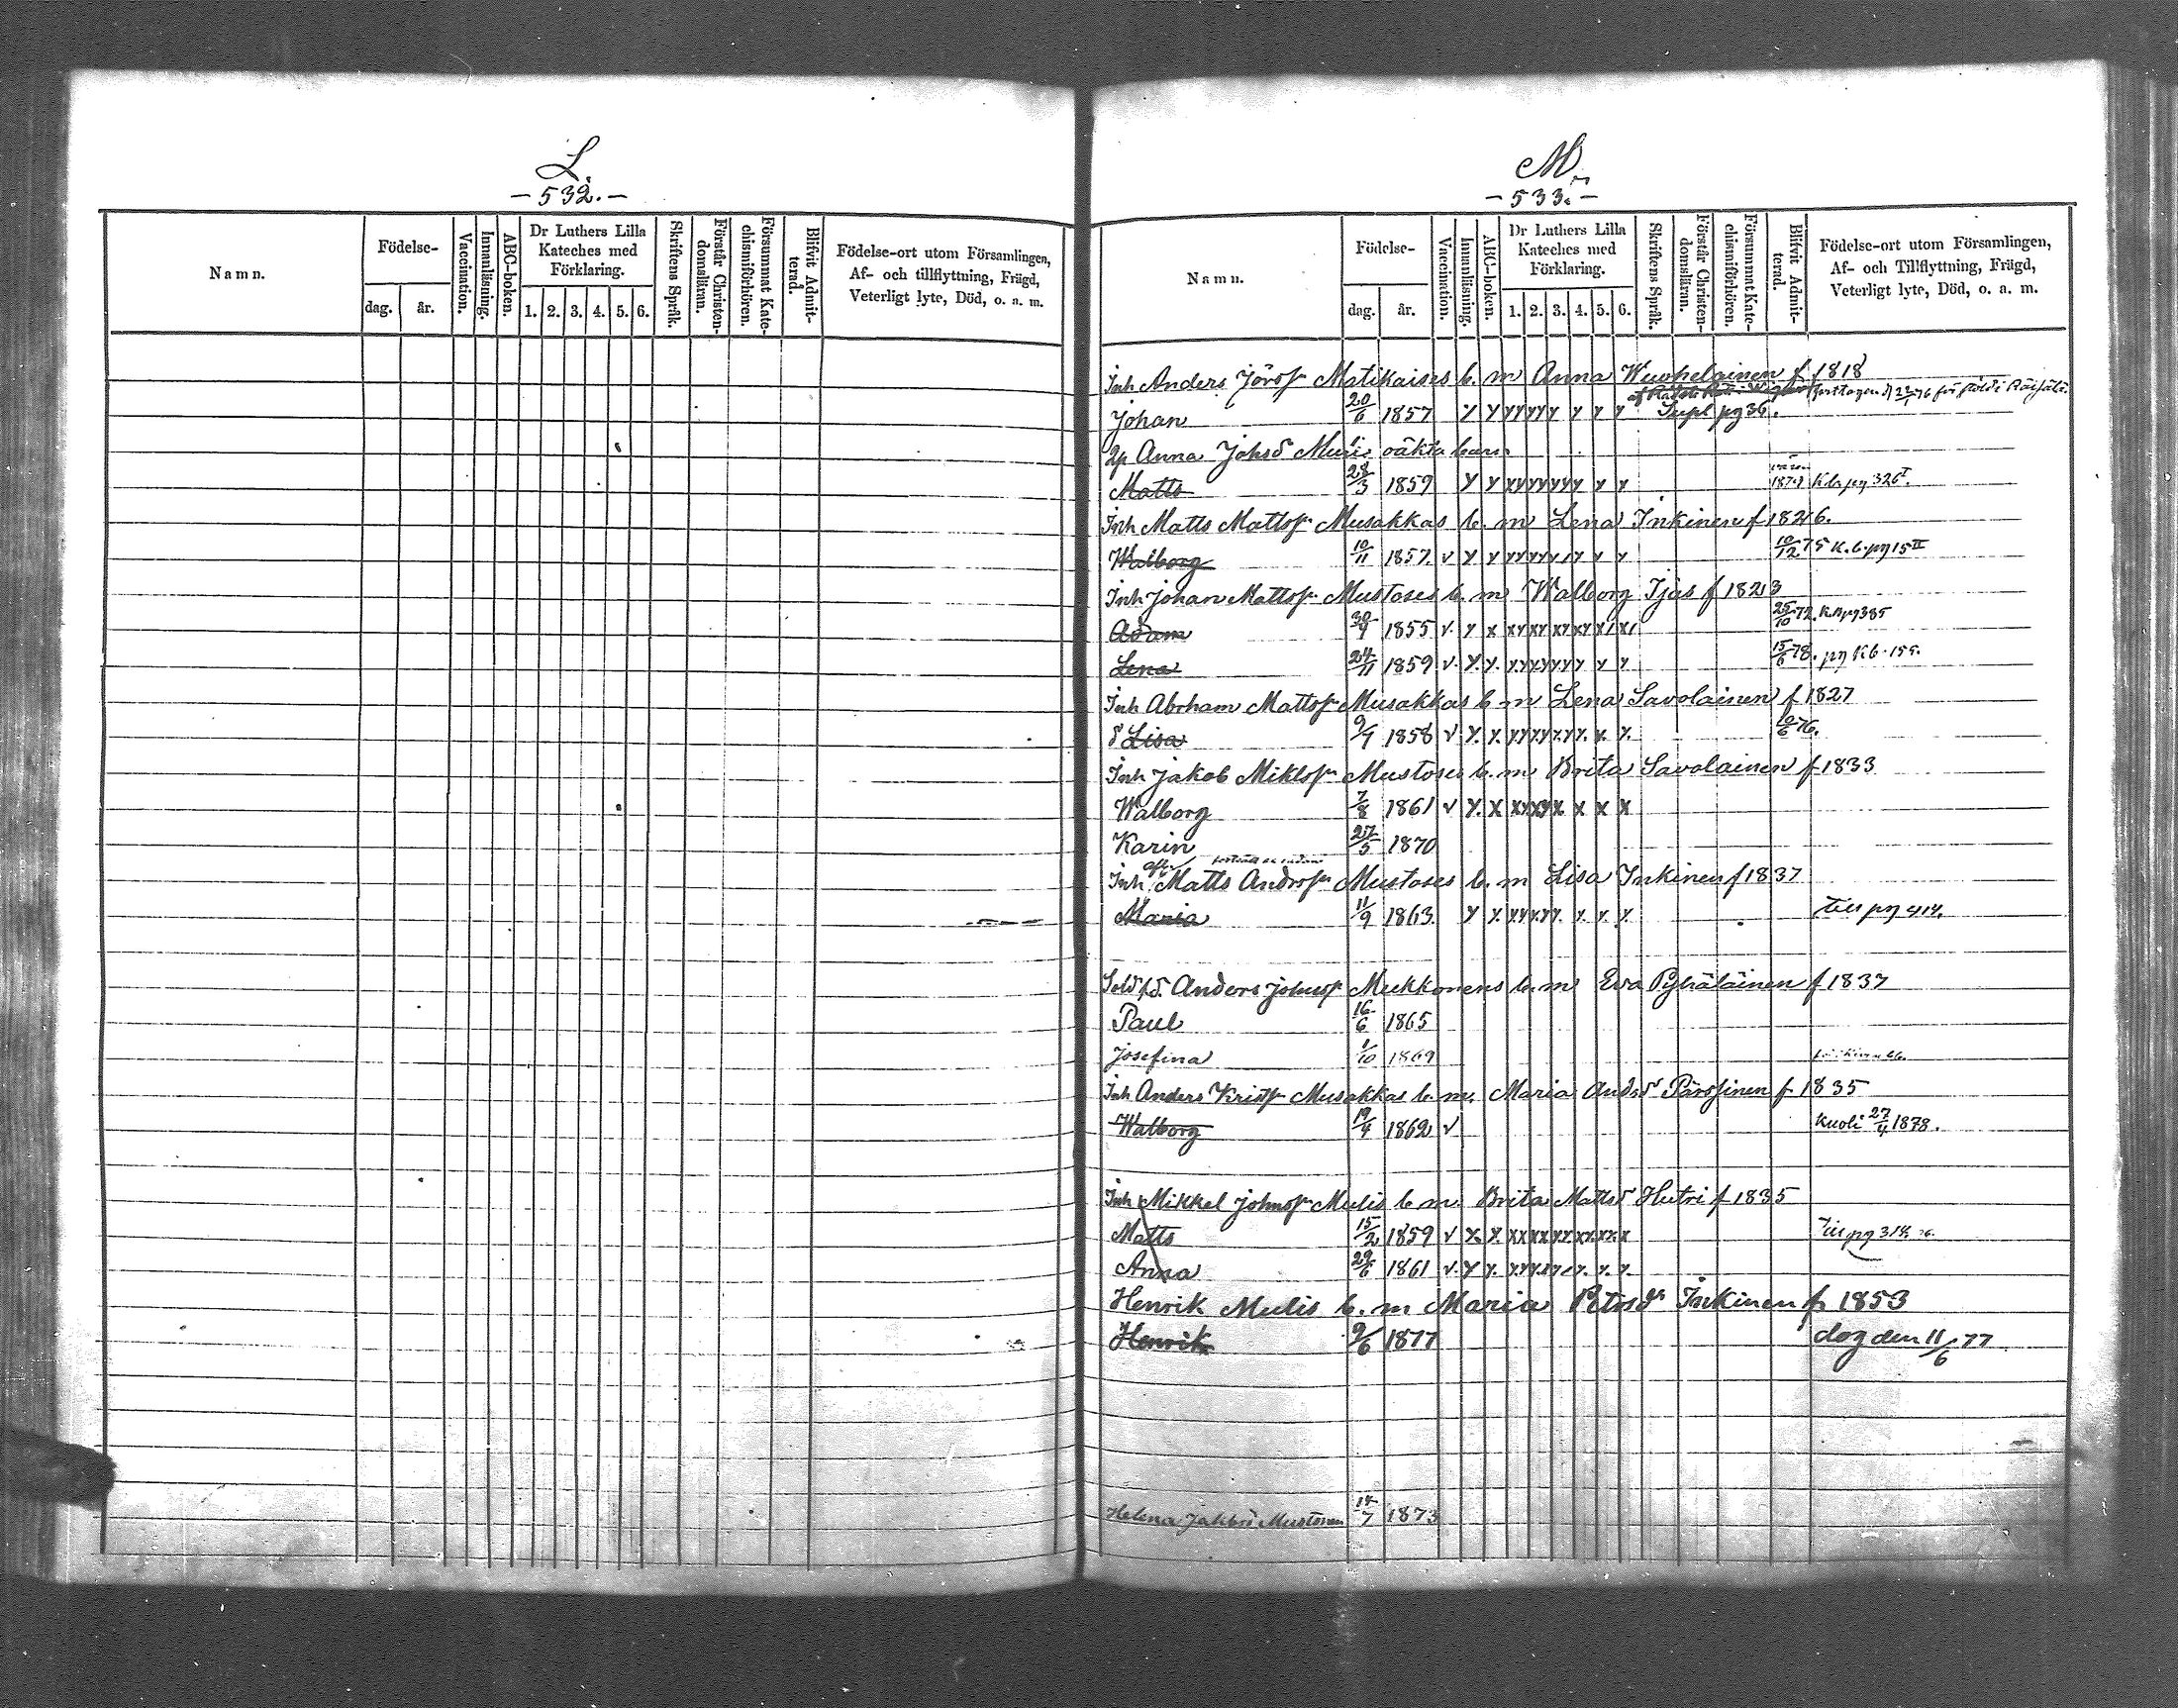 L.
- 532. -
Namn.
Födelse-
dag. år.
Vaccination.
Innanläsning.
ABC-boken.
Dr Luthers Lilla
Kateches med
Förklaring.
1. 2. 3. 4. 5. 6.
Skriftens Språk.
Förstår Christen-
domsläran.
Försummat Kate-
chismiförhören.
Blifvit Admit-
terad.
Födelse-ort utom Församlingen,
Af- och tillflyttning, Frägd,
Veterligt lyte, Död, o. a. m.
M.
- 533. -
Namn.
Födelse-
dag. år.
Vaccination.
Innanläsning.
ABC-boken.
Dr Luthers Lilla
Kateches med
Förklaring.
1. 2. 3. 4. 5. 6.
Skriftens Språk.
Förstår Christen-
domsläran.
Försummat Kate-
chismiförhören.
Blifvit Admit-
terad.
Födelse-ort utom Församlingen,
Af- och Tillflyttning, Frägd,
Veterligt lyte, Död, o. a. m.
Inh Anders Matikaises b. m Anna Wuohelainen f 1818
Johan 20/6 1857 Supl pg 36.
Anna Johsd oäkta barn
Matts 28/3 1859 Kb pg 326 I.
Inh Matts Mattsn Musakkas b. m Lena Inkinen f 1826.
Walborg 10/11 1857 v 10/12 75 K. b. pg 15 II
Inh Johan Mattsn Mustoses b. m Walborg Ijäs f 1823
Adam 30/9 1855 v. 25/10 72. K b pg 385
Lena 24/11 1859 v. 15/6 78. pg Kb. 155.
Inh Abrham Mattsn Musakkas b m Lena Savolainen f 1827
d Lisa 9/7 1858 v /6 76.
Inh Jakob Miklsn Mustoses b. m Brita Savolainen f 1833
Walborg 7/8 1861 v
Karin 27/5 1870
Inh Matts Andrsn Mustoses b. m Lisa Inkinen f 1837
Maria 11/9 1863 till pg 414.
Anders Johnsn Mukkonens b. m Eva Pyhäläinen f 1837
Paul 16/6 1865
Josefina 1/10 1869
Inh Anders Krisn Musakkas b. m. Maria Andsd Pärssinen f 1835
Walborg 19/4 1862 v kuoli 27/4 1878.
Inh Mikkel Johnsn Mulis b m. Brita Mattsd Hutri f 1835
Matts 15/2 1859 v
Anna 29/6 1861 v.
Henrik Mulis b. m Maria Petrsdr Inkinen f 1853
Henrik 9/6 1877 dog den 11/6 77
Helena Jakbsd Mustonen 14/7 1873